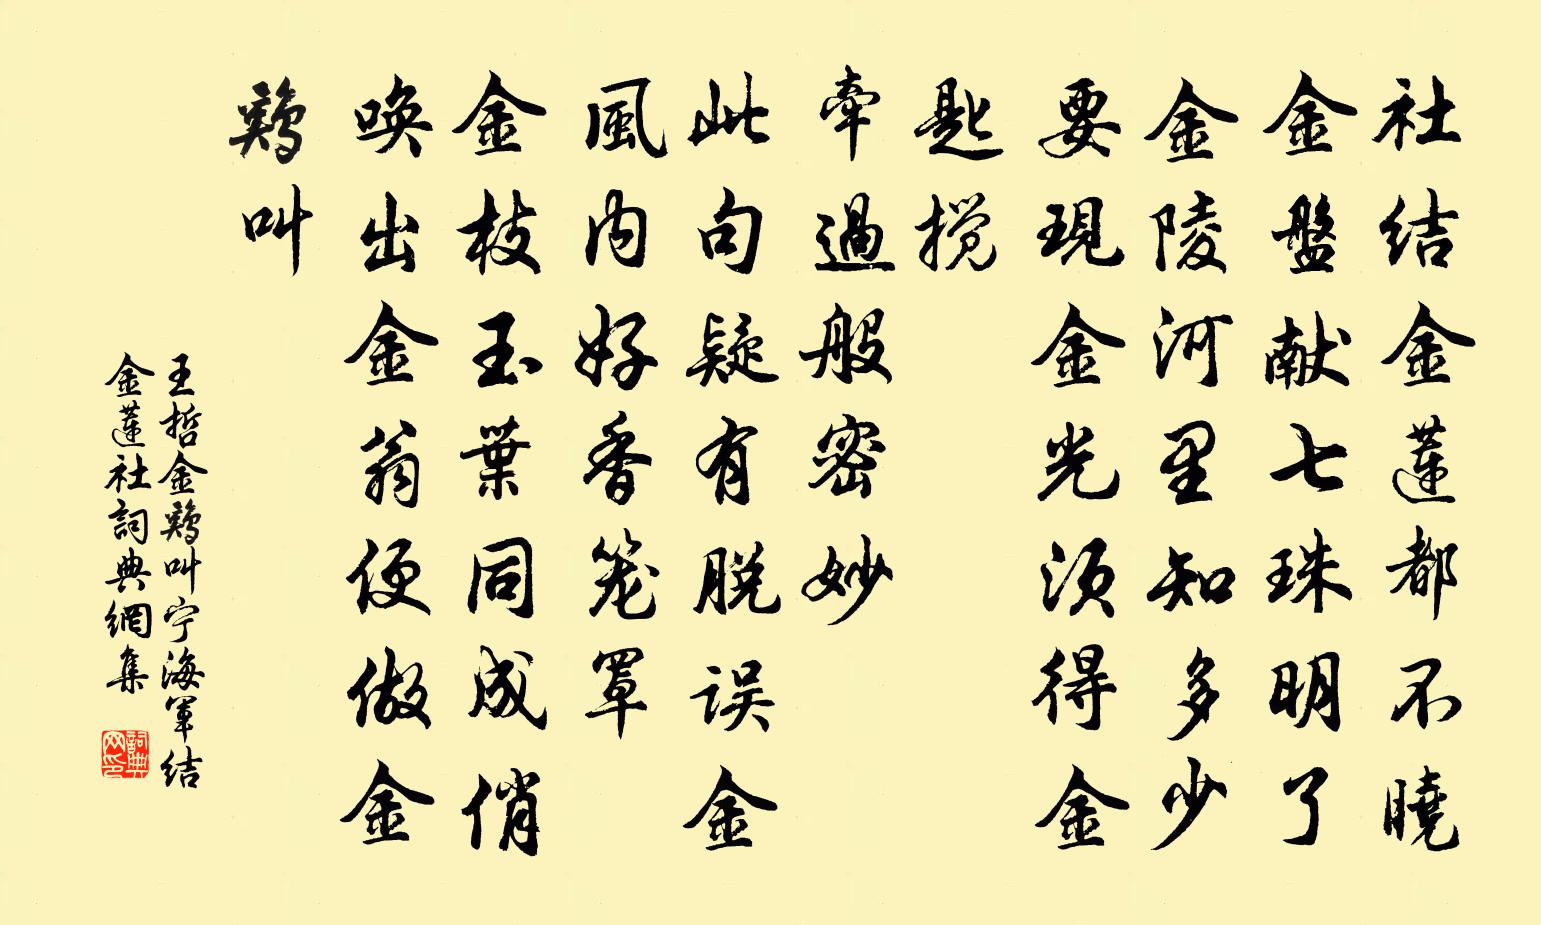 社结金蓮都不曉
金盤献七珠明了
金陵河里知多少
要現金光须得金
匙搅
牵過般密妙
此句疑有脱误金
風内好香笼罩
金枝玉葉同成俏
唤出金翁便做金
鷄叫
王哲金鷄叫宁海軍结
金蓮社詞典網集
詞典网印